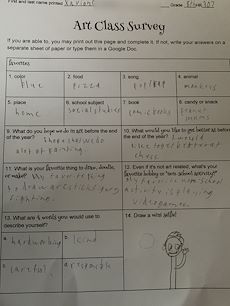 First and last name printed Xaviari Grade 307
Art Class Survey
If you are able to, you may print out this page and complete it. If not, write your answers on a
separate sheet of paper or type them in a Google Doc.
favorites
1. color
blue
2. food
pizza
3. song
pop/rap
4. animal
monkeys
5. place
home
6. school subject
social studies
7. book
comic books
8. candy or snack
peanut
m&ms
9. What do you hope we do in art before the end
of the year?
I hope that we do
a lot of painting.
10. What would you like to get better at before
the end of the year?
I would
like to get better at
chess
11. What is your favorite thing to draw, doodle,
or make?
My favorite thing
to draw are stick guys
fighting.
12. Even if it's not art related, what's your
favorite hobby or "non-school activity"?
My favorite non school
activity is playing
video games
13. What are 4 words you would use to
describe yourself?
a hardworking
b kind
c careful
d responsible
14. Draw a mini selfie!